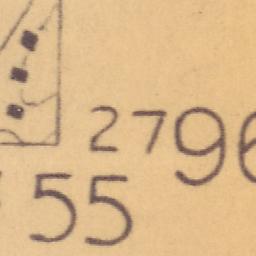 2796
55